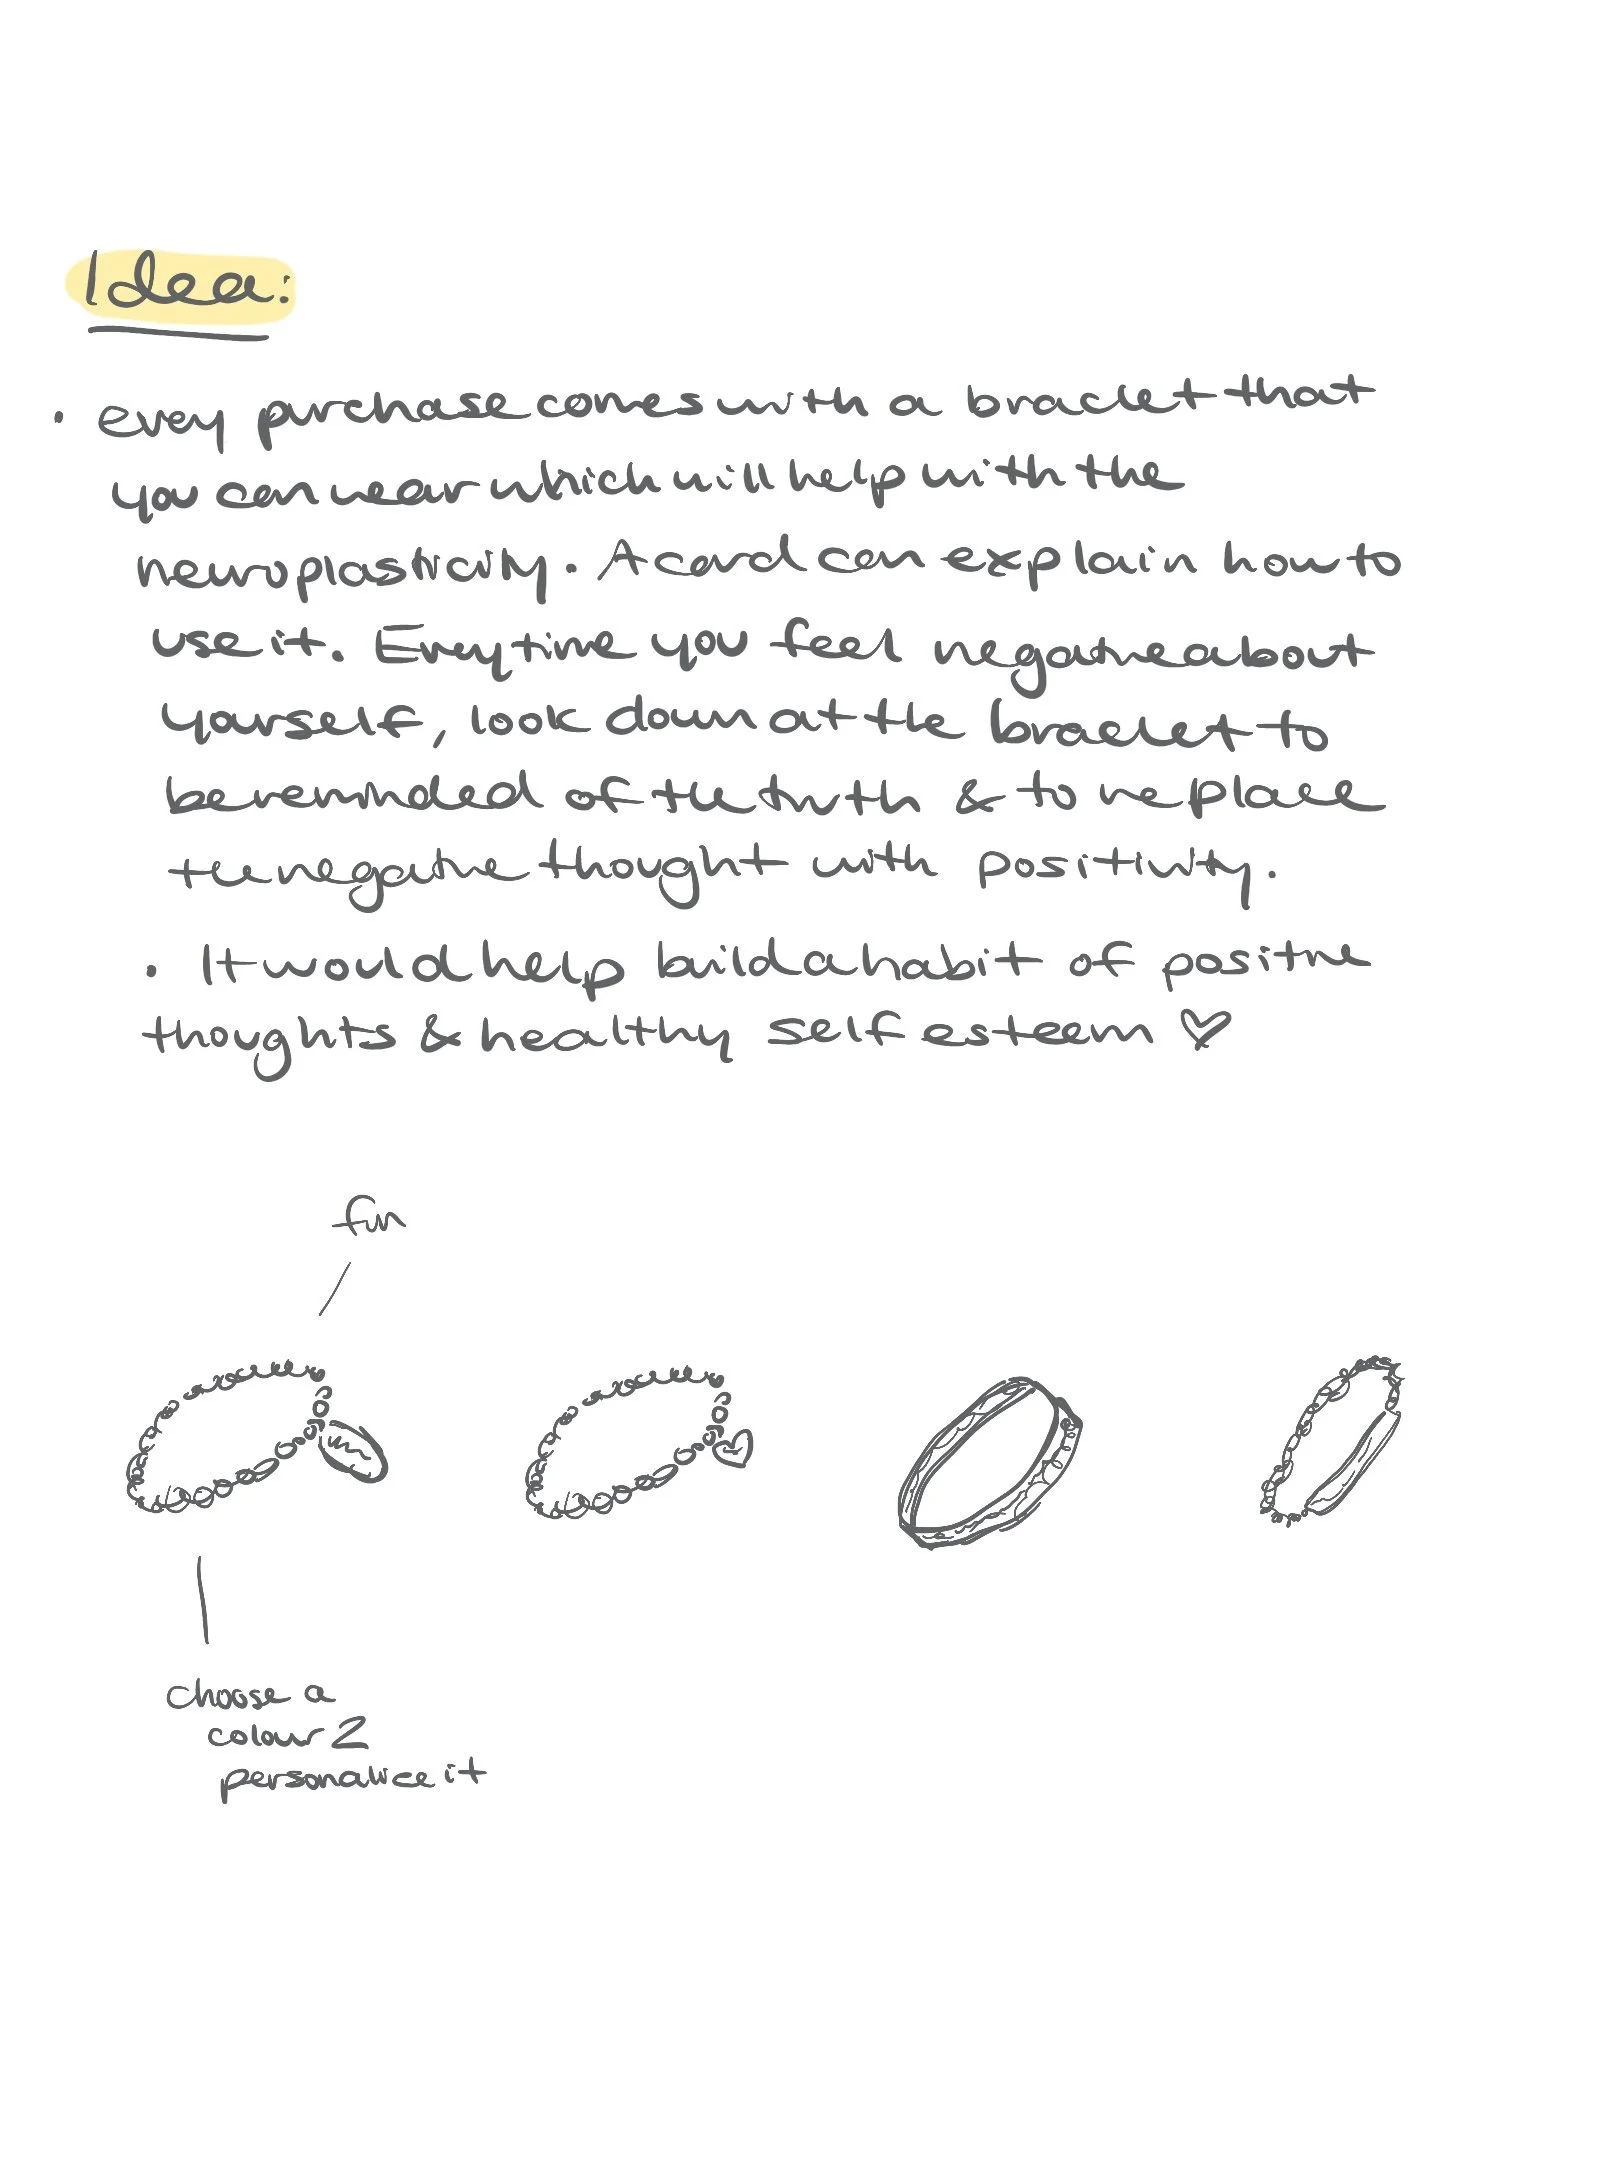 Idea:
• every purchase comes with a bracelet that
you can wear which will help with the
neuroplasticity. A card can explain how to
use it. Everytime you feel negative about
yourself, look down at the bracelet to
be reminded of the truth & to replace
the negative thought with positivity.
• It would help build a habit of positive
thoughts & healthy self esteem ♡
fun
choose a
colour 2
personalize it